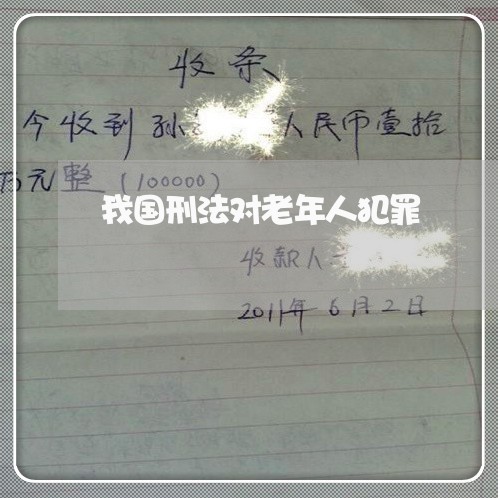 收条
今收到孙 人民币壹拾
万元整(100000)
我国刑法对老年人犯罪
收款人
2011年6月2日